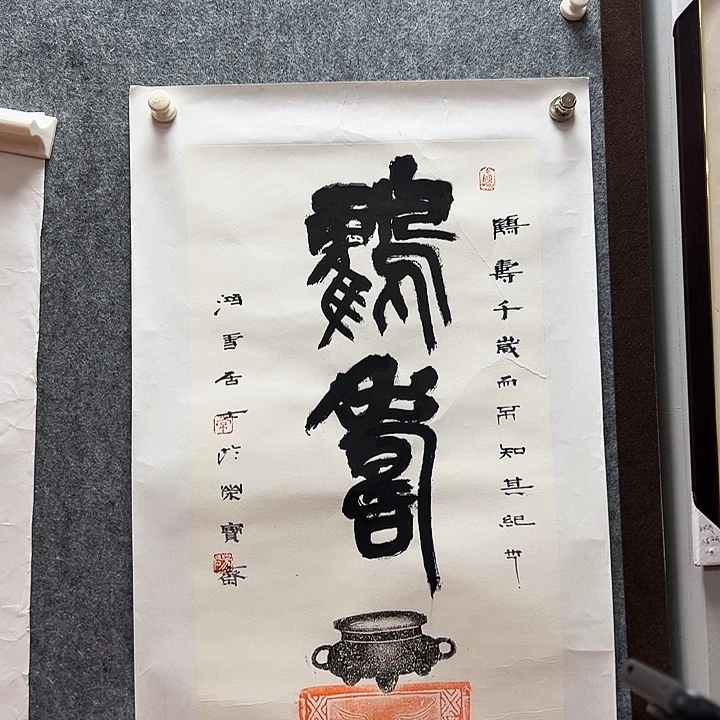 鶴壽
鶴壽千歲而不知其紀也
鴻雪居士
於榮寶齋